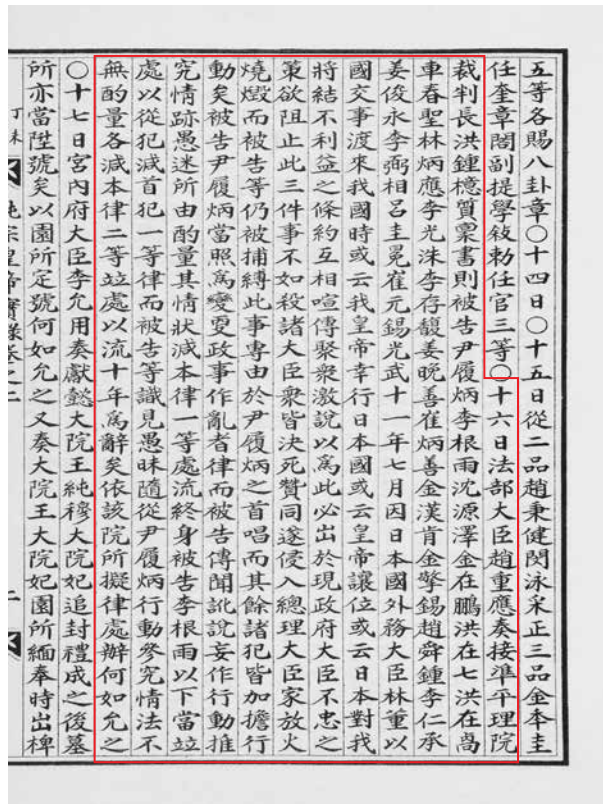 五等各賜八卦章○十四日○十五日從二品趙秉健閔泳采正三品金本圭
任奎章閣副提學敍勅任官三等○十六日法部大臣趙重應奏接準平理院
裁判長洪鍾檍質稟書則被告尹履炳李根雨沈源澤金在鵬洪在七洪在卨
車春聖林炳應李光洙李存馥姜晩善崔炳善金漢肯金擎錫趙舜鍾李仁承
姜俊永李弼相呂圭冕崔元錫光武十一年七月因日本國外務大臣林董以
國交事渡來我國時或云我皇帝幸行日本國或云皇帝讓位或云日本對我
將結不利益之條約互相喧傳聚衆激說以爲此必出於現政府大臣不忠之
策欲阻止此三件事不如殺諸大臣衆皆決死贊同遂侵入總理大臣家放火
燒燬而被告等仍被捕縛此事專由於尹履炳之首唱而其餘諸犯皆加擔行
動矣被告尹履炳當照爲變更政事作亂者律而被告傳聞訛說妄作行動推
究情跡愚迷所由酌量其情狀減本律一等處流終身被告李根雨以下當竝
處以從犯減首犯一等律而被告等識見愚昧隨從尹履炳行動參究情法不
無酌量各減本律二等竝處以流十年爲辭矣依該院所擬律處辦何如允之
○十七日宮內府大臣李允用奏獻懿大院王純穆大院妃追封禮成之後墓
所亦當陞號矣以園所定號何如允之又奏大院王大院妃園所緬奉時出椑
丁未
純宗皇帝實錄卷之二
二